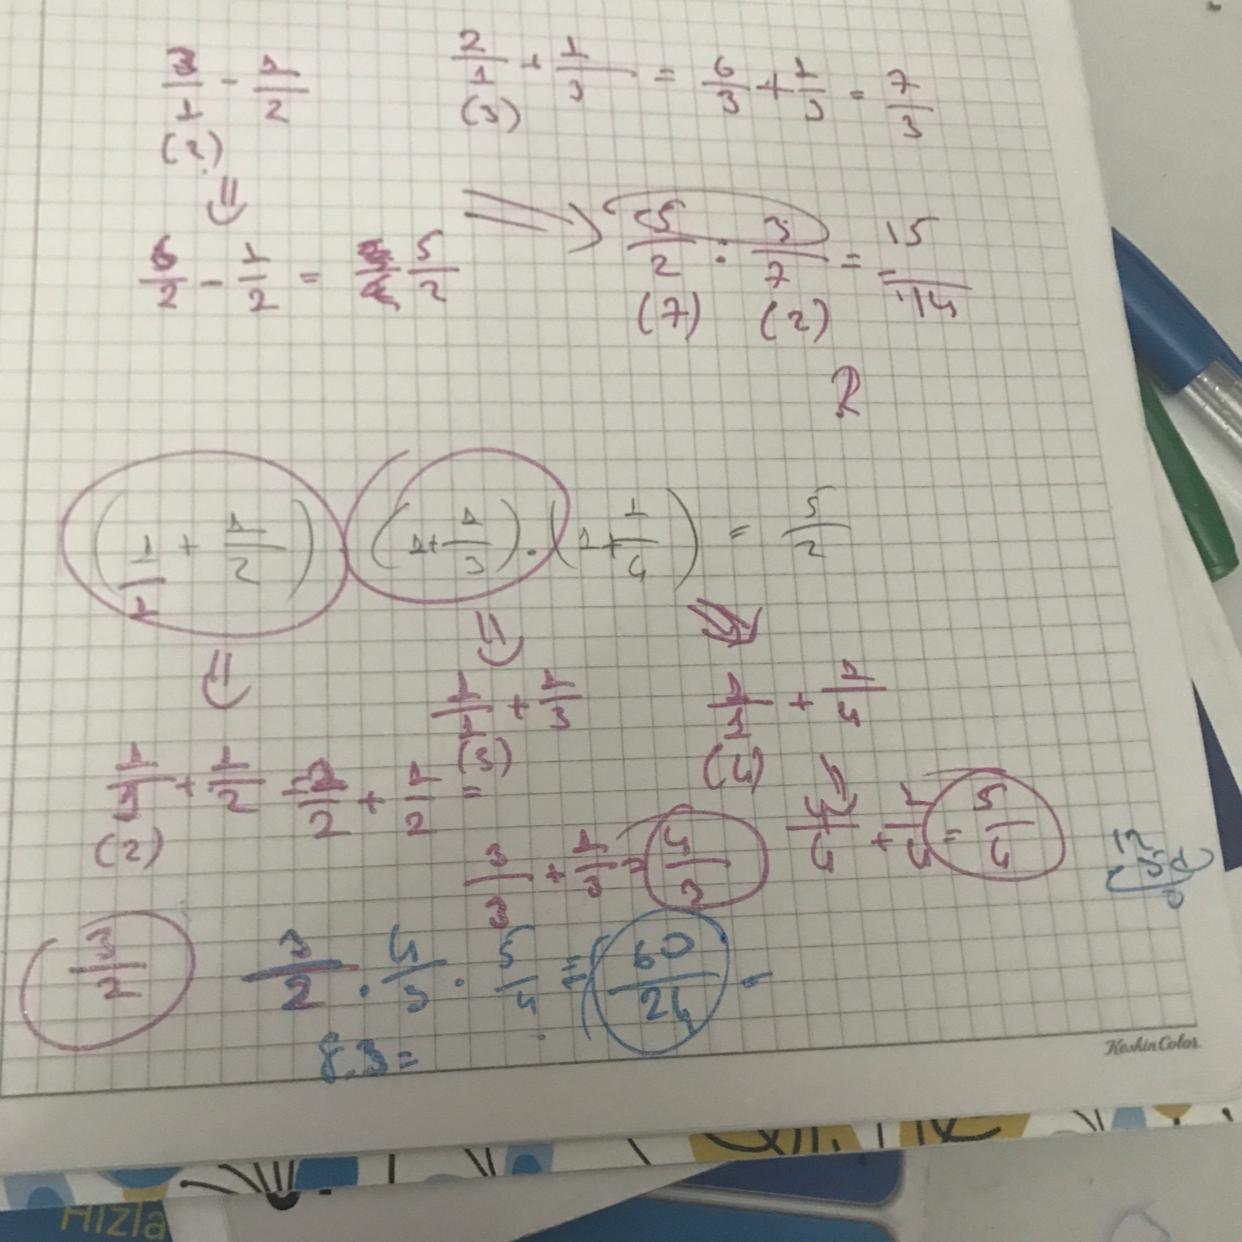 3/1 - 1/2
(2)
2/1 + 1/3 = 6/3 + 1/3 = 7/3
(3)
6/2 - 1/2 = 5/2
5/2 : 3/7 = 15/14
(7) (2)
(1/1 + 1/2) · (1 + 1/3) · (1 + 1/4) = 5/2
1/1 + 1/3
(3)
1/1 + 1/4
(4)
1/1 + 1/2 = 2/2 + 1/2 =
(2)
3/3 + 1/3 = 4/3
4/4 + 1/4 = 5/4
3/2
3/2 · 4/3 · 5/4 = 60/24 =
8.3=
KeskinColor
Hızla